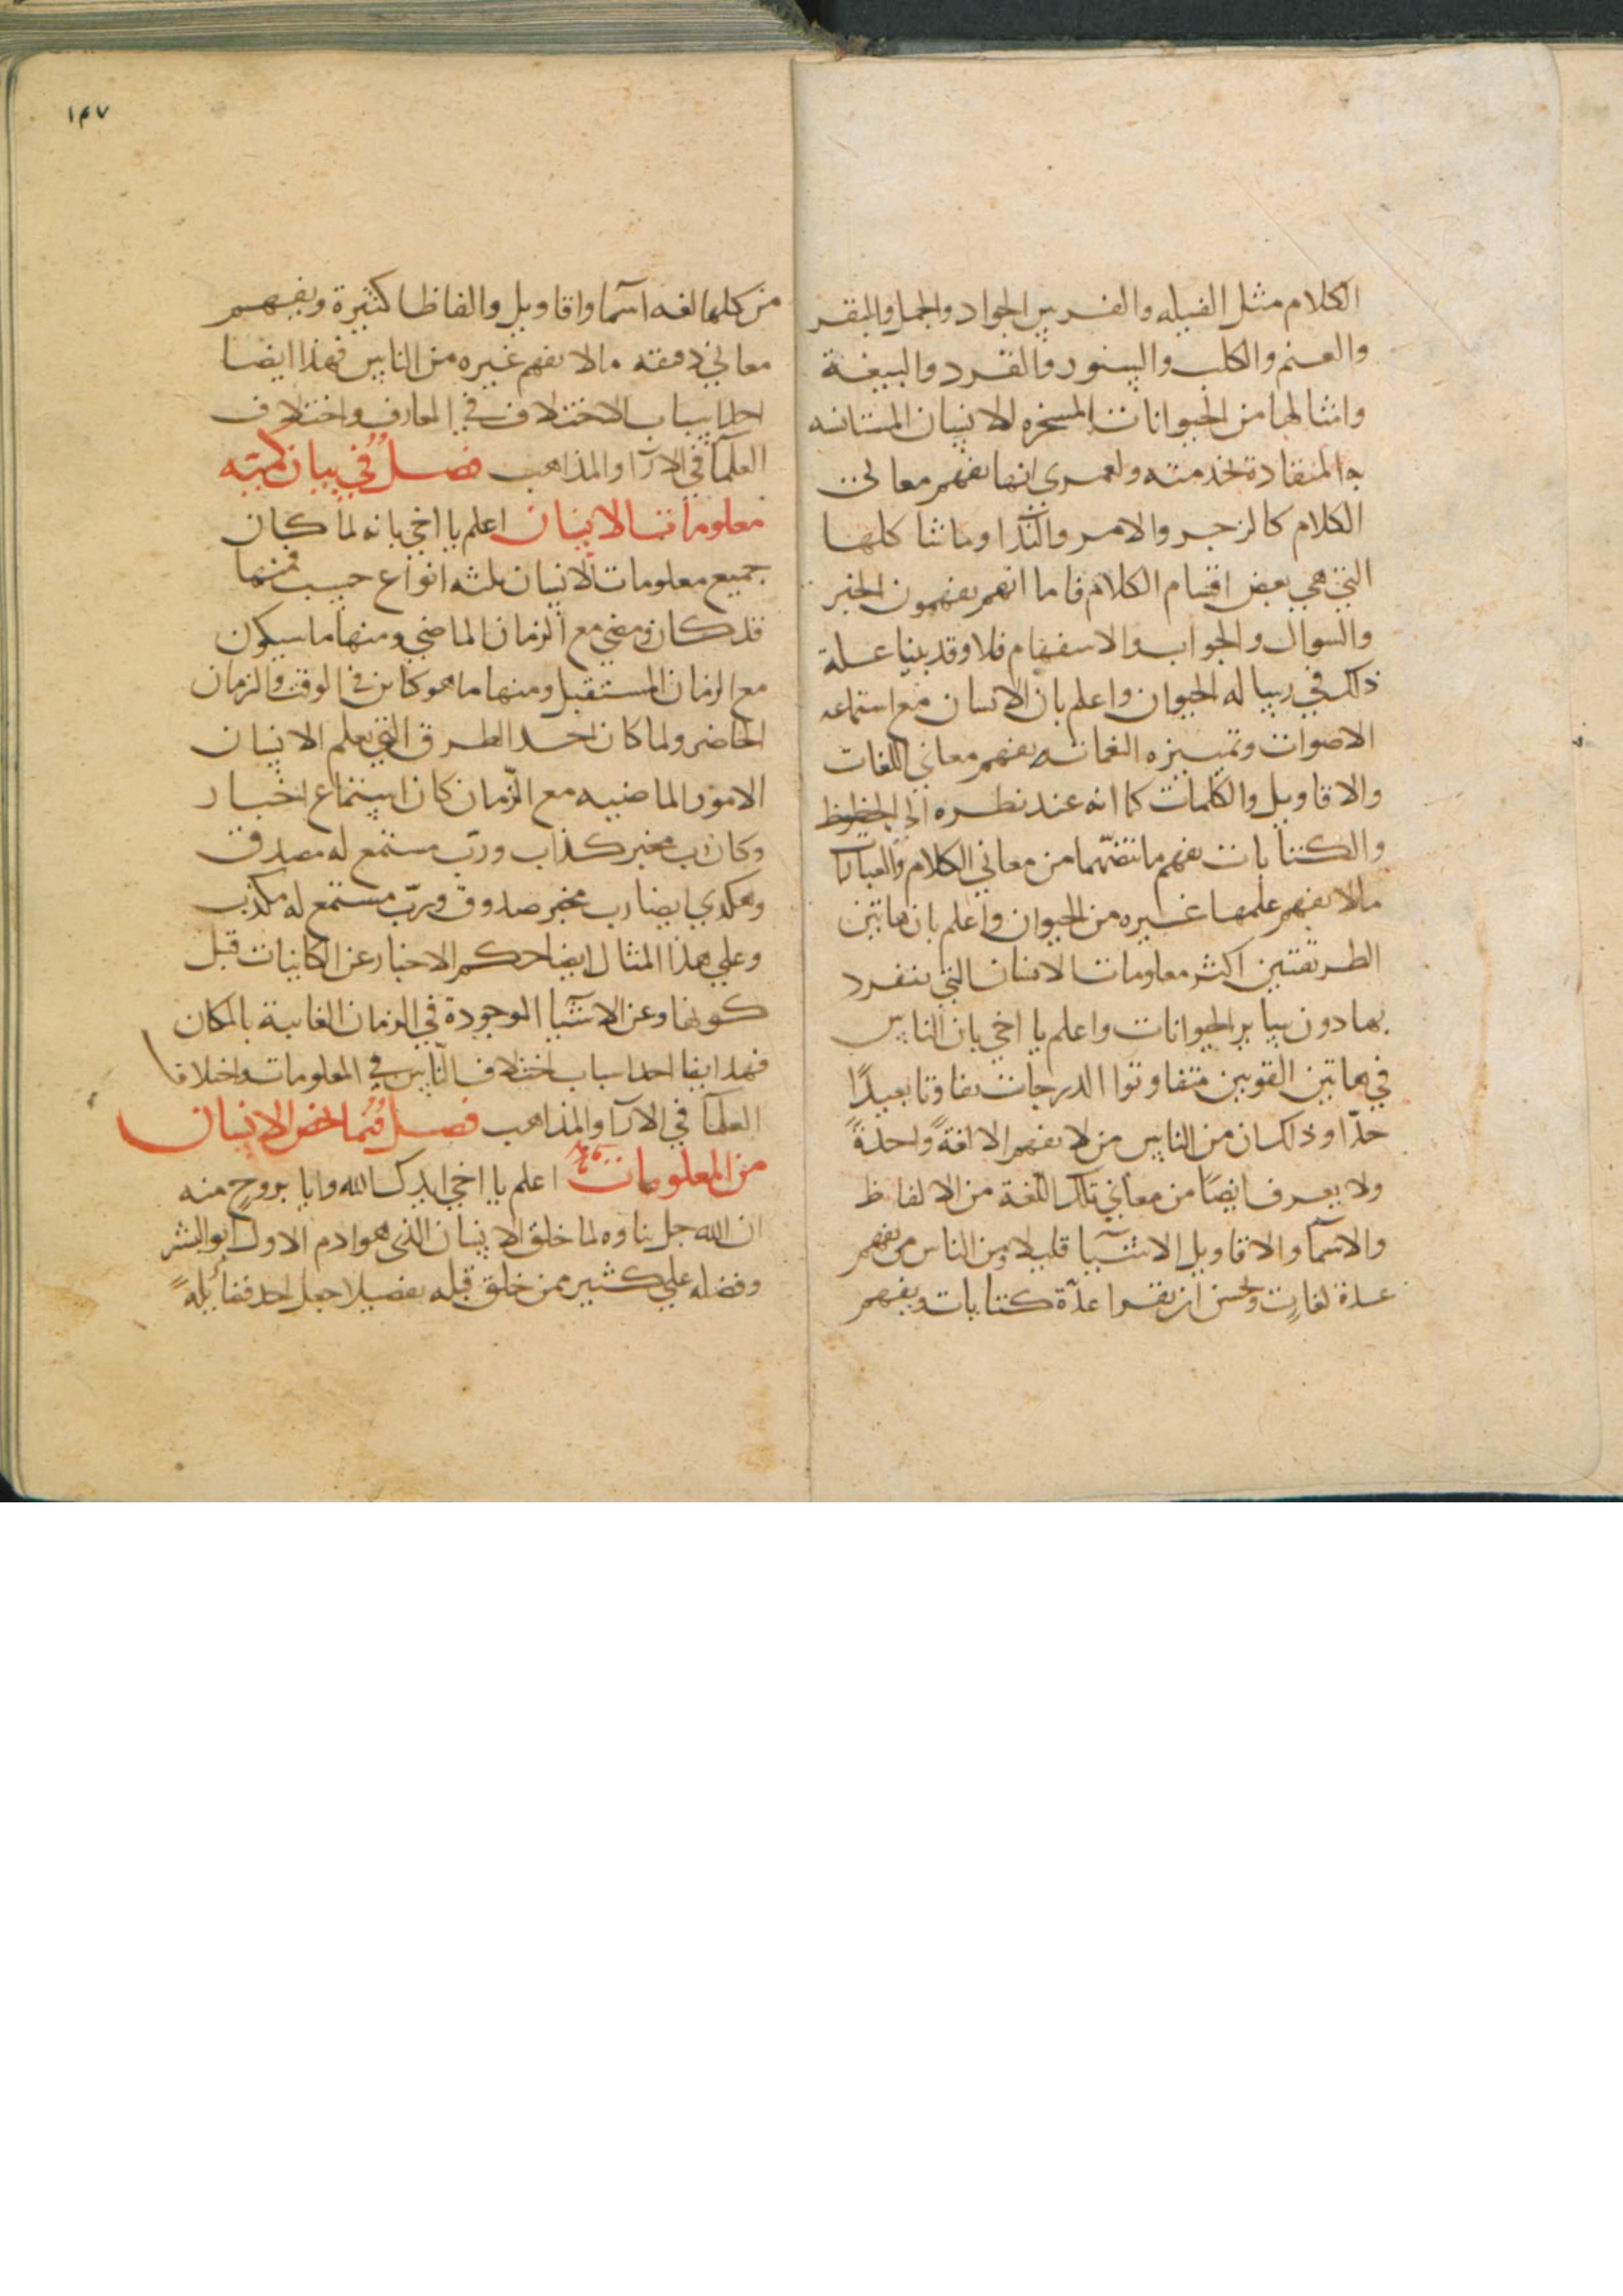 الكلام مثل الفيله والفرس الجواد والجمل والبقر
والغنم والكلب والسنور والقرد والببغة
وامثالها من الحيوانات المسخره للانسان المستانسه
به المنقادة لخدمته ولعمري انها تفهم معاني
الكلام كالزجر والامر والندا وما شاكلها
التي هي بعض اقسام الكلام فاما انهم يفهمون الخبر
والسوال والجواب والاستفهام فلا وقد بينا علة
ذلك في رسالة الحيوان واعلم بان الانسان مع استماعه
الاصوات وتمييزه النغمات يفهم معاني اللغات
والاقاويل والكلمات كما انه عند نظره الى الخطوط
والكتابات يفهم ما تتضمنها من معاني الكلام والعبارات
مالا يفهم علمها غيره من الحيوان واعلم بان هاتين
الطريقتين اكثر معلومات الانسان التي ينفرد
بها دون ساير الحيوانات واعلم يا اخي بان الناس
في هاتين القوتين متفاوتوا الدرجات تفاوتا بعيدًا
جدّا وذلك ان من الناس من لا يفهم الا لغةً واحدةً
ولا يعرف ايضًا من معاني تلك اللغة من الالفاظ
والاسمآ والاقاويل الا شيا قليلا ومن الناس من يفهم
عدة لغاتٍ ويحسن ان يقرا عدّة كتابات ويفهم
١٤٧
من كلها لغه اسما واقاويل والفاظا كثيرة ويفهم
معاني دقيقه مالا يفهم غيره من الناس فهذا ايضا
احد اسباب الاختلاف في المعارف واختلاف
العلمآ في الارآ والمذاهب فصلٌ في بيان كمية
معلومات الانسان اعلم يا اخي بانه لما كان
جميع معلومات الانسان ثلثه انواع حسب فمنها
قد كان ومضى مع الزمان الماضي ومنها ما سيكون
مع الزمان المستقبل ومنها ما هو كاين في الوقت والزمان
الحاضر ولما كان احد الطرق التي يعلم الانسان
الامور الماضيه مع الزمان كان استماع اخبار
وكان رب مخبر كذاب وربّ مستمع له مصدق
وهكدي ايضا رب مخبر صدوق وربّ مستمع له مكذب
وعلي هذا المثال ايضا حكم الاخبار عن الكاينات قبل
كونها وعن الاشيا الموجودة في الزمان الغايبة بالمكان
فهذا ايضا احد اسباب اختلاف الناس في المعلومات واختلاف
العلمآ في الارآ والمذاهب فصل فيما يخص الانسان
من المعلومات اعلم يا اخي ايدك الله وايا بروحٍ منه
ان الله جل ثناوه لما خلق الانسان الذي هو ادم الاول ابو البشر
وفضله علي كثير ممن خلق قبله تفضيلا جعل احد فضايله